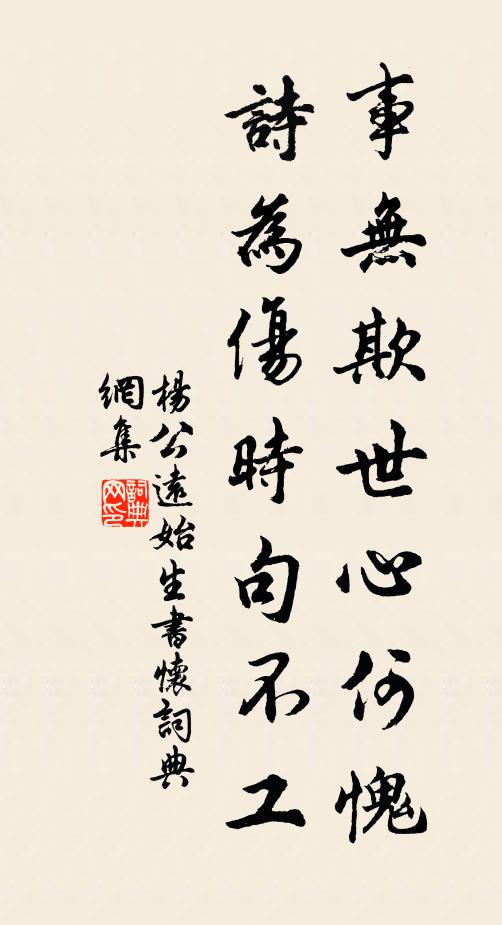 事無欺世心何愧
詩為傷時句不工
楊公遠始生書懷詞典
網集
詞典
网印